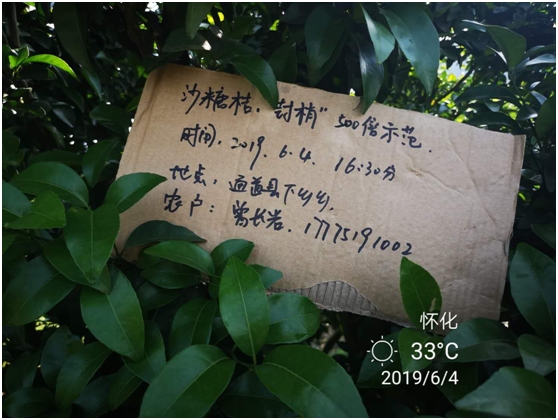 沙糖桔，"封梢"500倍示范.
时间，2019. 6.4. 16:30分
地点，通道县下乡乡.
农户：曾长岩. 17775191002
怀化
33°C
2019/6/4